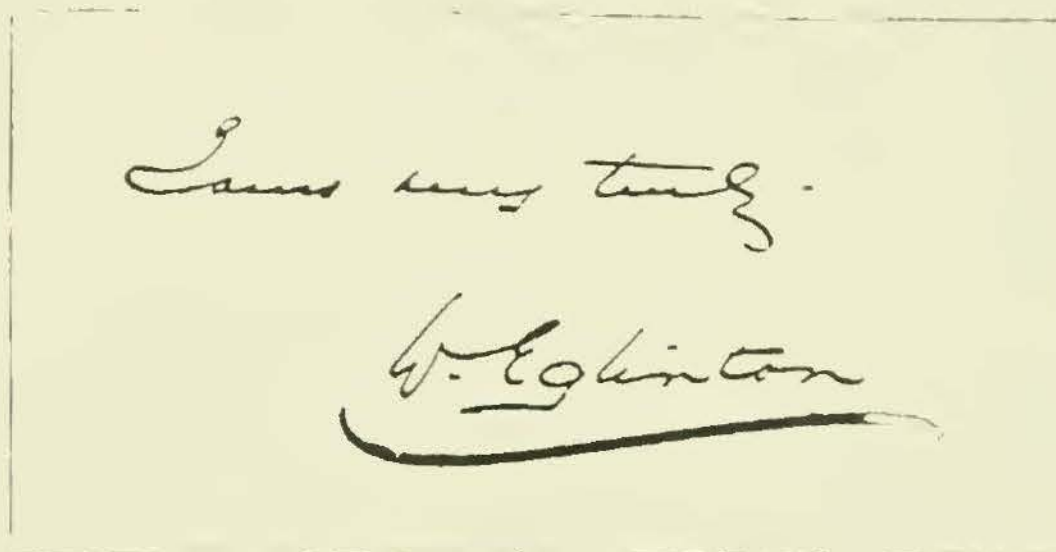 Yours very truly.
W. Eglinton